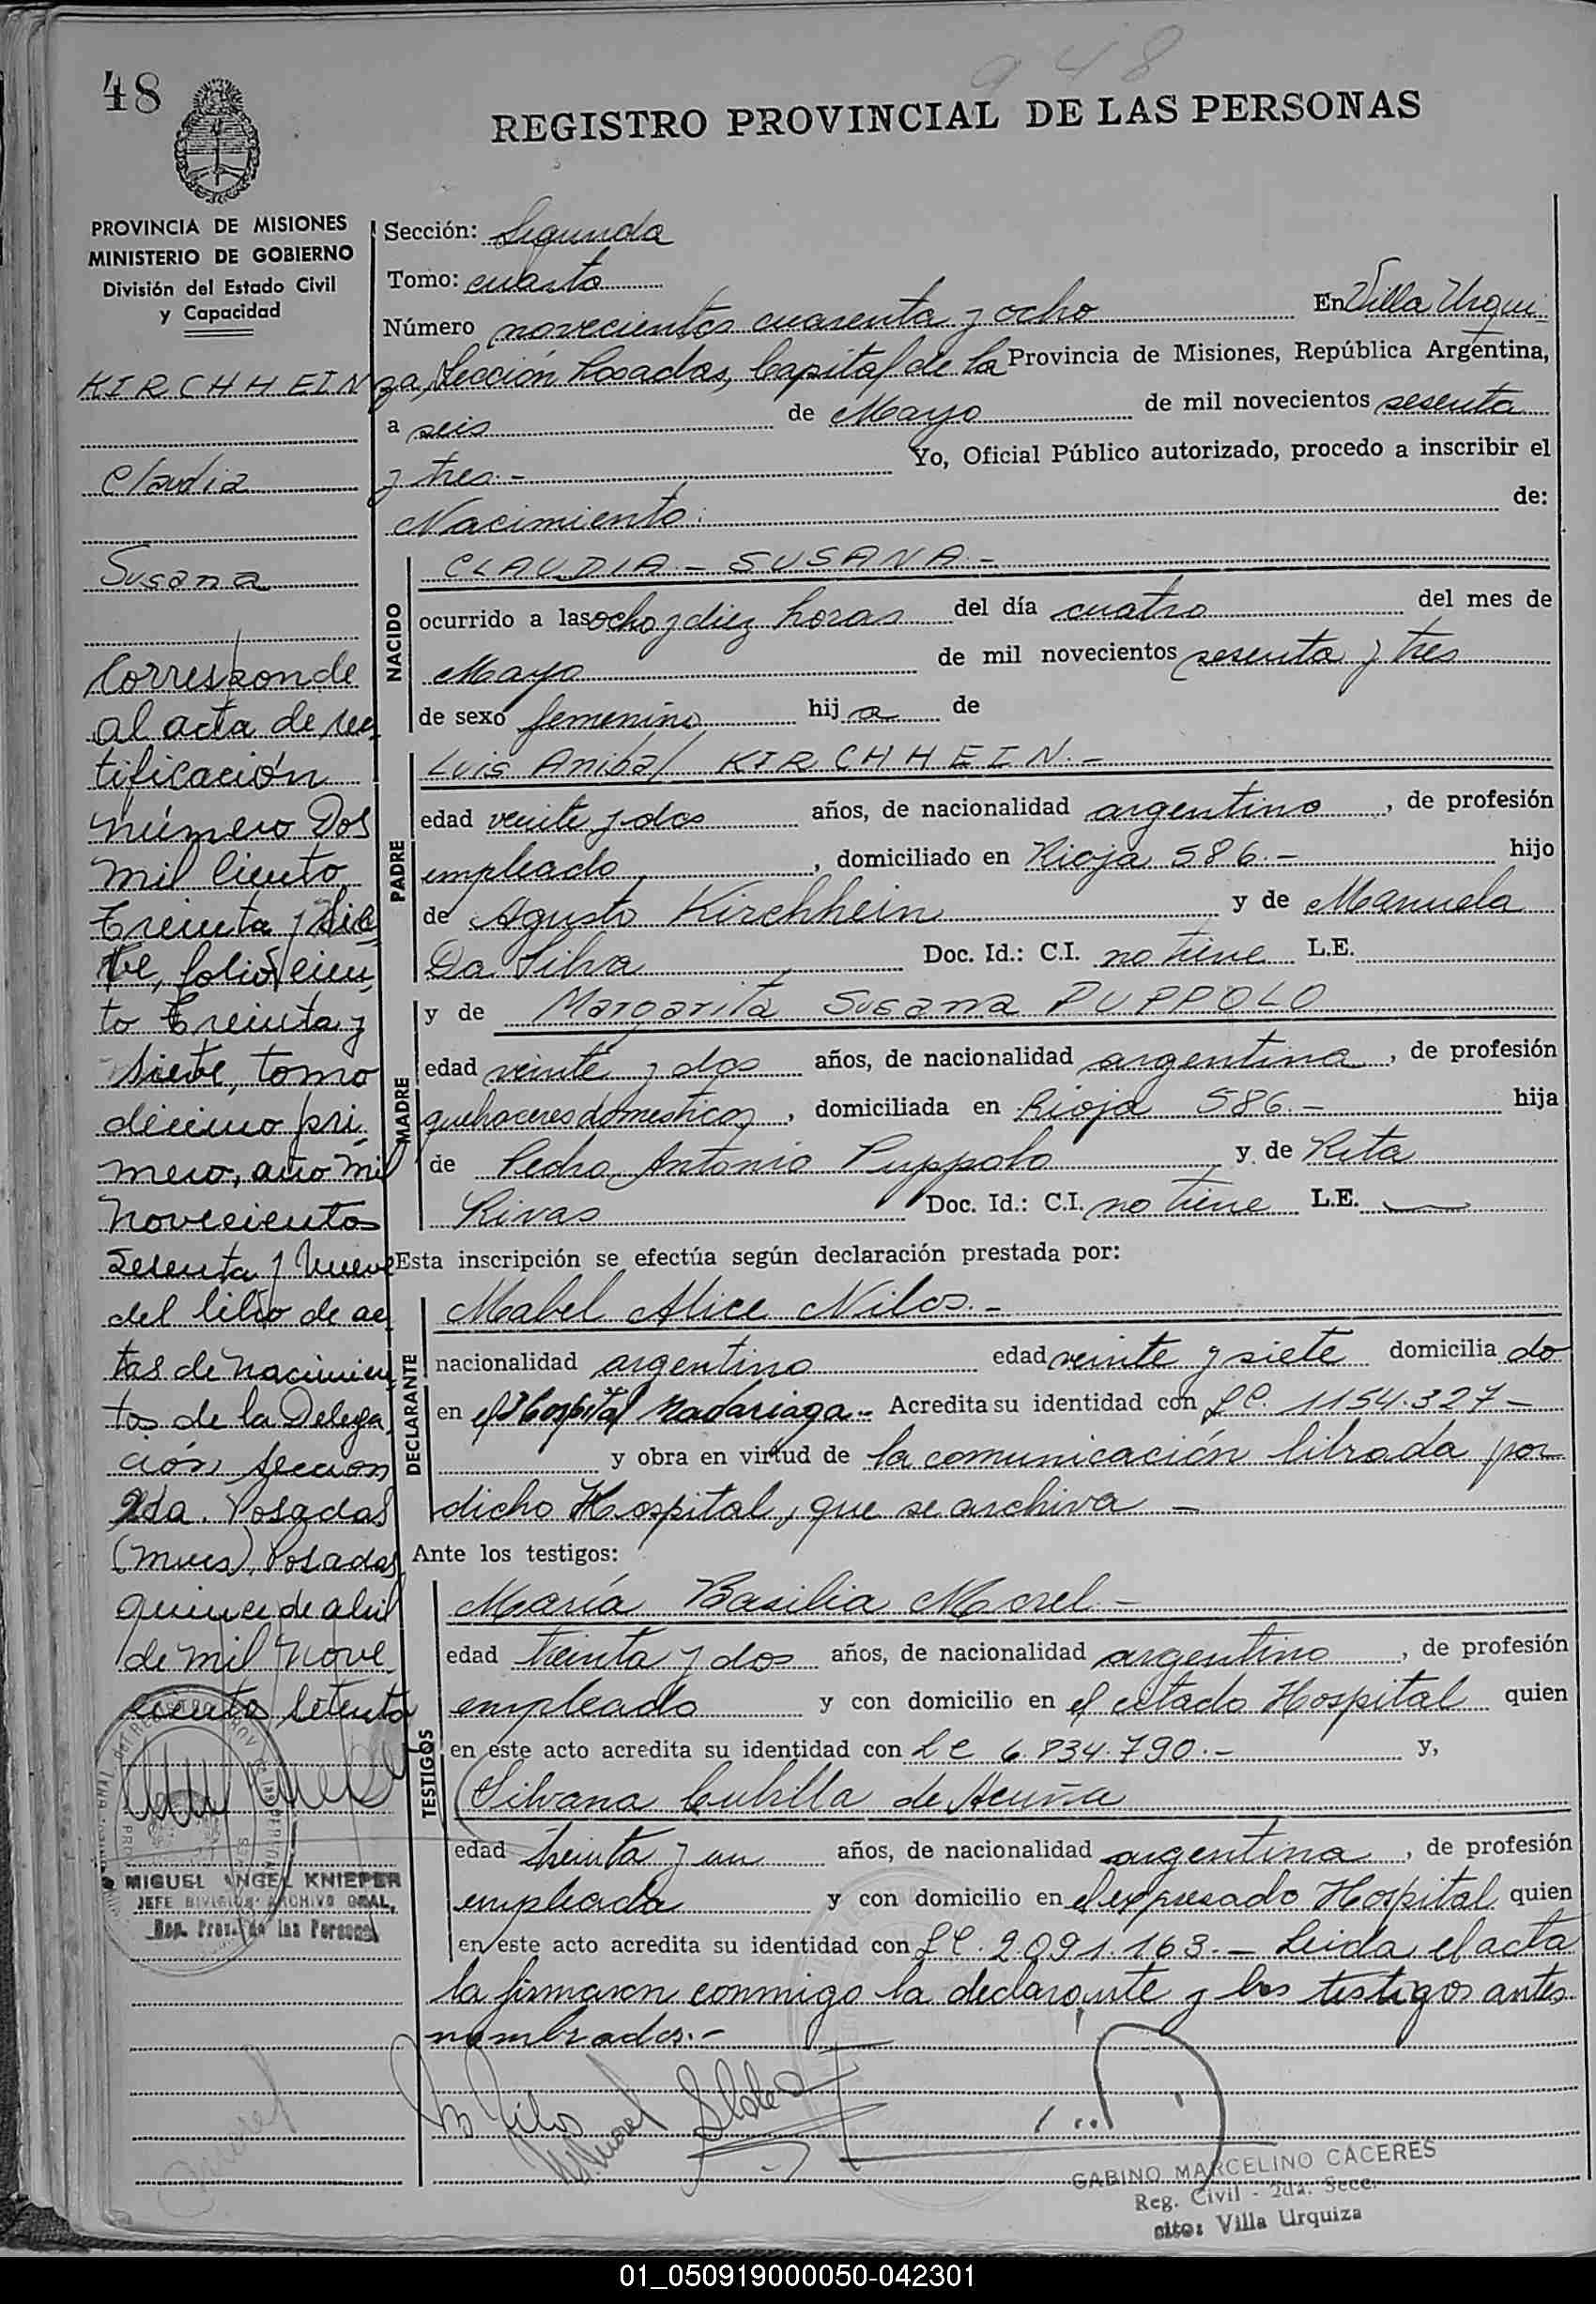 948
48
REGISTRO PROVINCIAL DE LAS PERSONAS
PROVINCIA DE MISIONES
MINISTERIO DE GOBIERNO
División del Estado Civil
y Capacidad
KIRCHHEIN
Claudia
Susana
Corresponde
al acta de rec
tificación
número Dos
mil ciento
treinta y sie
te, folio cien
to treinta y
siete, tomo
décimo pri
mero, año mil
novecientos
sesenta y nueve
del libro de ac
tas de nacimien
tos de la Delega
ción sección
2da. Posadas
(Mnes). Posadas
quince de abril
de mil nove
cientos setenta
MIGUEL ANGEL KNIEPER
JEFE DIVISION ARCHIVO GRAL.
Reg. Prov. de las Personas
Sección: Segunda
Tomo: cuarto
Número novecientos cuarenta y ocho En Villa Urqui
za, Sección Posadas, Capital de la Provincia de Misiones, República Argentina,
a seis de Mayo de mil novecientos sesenta
y tres.- Yo, Oficial Público autorizado, procedo a inscribir el
Nacimiento. de:
NACIDO
CLAUDIA - SUSANA -
ocurrido a las ocho y diez horas del día cuatro del mes de
Mayo de mil novecientos sesenta y tres
de sexo femenino hij a de
PADRE
Luis Anibal KIRCHHEIN.-
edad veinte y dos años, de nacionalidad argentino, de profesión
empleado, domiciliado en Rioja 586.- hijo
de Agusto Kirchhein y de Manuela
Da Silva Doc. Id.: C.I. no tiene L.E.
MADRE
y de Margarita Susana PUPPOLO
edad veinte y dos años, de nacionalidad argentina, de profesión
quehaceres domesticos, domiciliada en Rioja 586.- hija
de Pedro Antonio Puppolo y de Rita
Rivas Doc. Id.: C.I. no tiene L.E.
Esta inscripción se efectúa según declaración prestada por:
DECLARANTE
Mabel Alice Nilos.-
nacionalidad argentina edad veinte y siete domicilia do
en el Hospital Madariaga.- Acredita su identidad con L.C. 1154.327-
y obra en virtud de la comunicación librada por
dicho Hospital, que se archiva -
Ante los testigos:
TESTIGOS
María Basilia Morel -
edad treinta y dos años, de nacionalidad argentina, de profesión
empleada y con domicilio en el citado Hospital quien
en este acto acredita su identidad con L C 6.834.790.- y,
Silvana Cubilla de Acuña
edad treinta y un años, de nacionalidad argentina, de profesión
empleada y con domicilio en el expresado Hospital quien
en este acto acredita su identidad con L C. 2.091.163.- Leida el acta
la firmaron conmigo la declarante y los testigos antes
nombrados.-
GABINO MARCELINO CACERES
Reg. Civil - 2da. Secc.
sito: Villa Urquiza
01_050919000050-042301